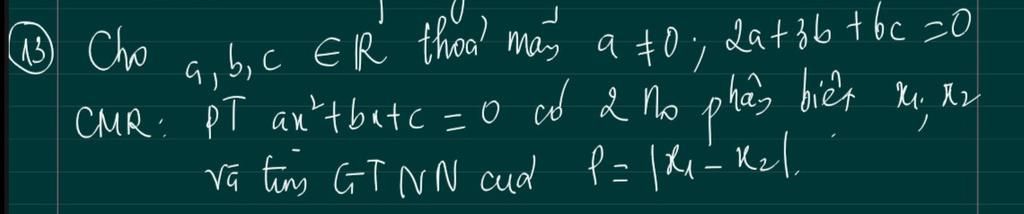 13 Cho a, b, c ∈ ℝ thoả mãn a ≠ 0; 2a + 3b + 6c = 0
CMR: PT ax² + bx + c = 0 có 2 no phân biệt x₁; x₂
và tìm GTNN của P = |x₁ - x₂|.